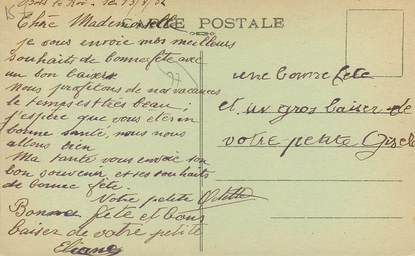 Bois le Roi. le 13/8/32
CARTE POSTALE
Chère Mademoiselle
je vous envoie mes meilleurs
souhaits de bonne fête avec
un bon baiser
Nous profitons de nos vacances
le temps est très beau ;
j'espère que vous êtes en
bonne santé, nous nous
allons bien
Ma tante vous envoie son
bon souvenir et ses souhaits
de bonne fête.
Votre petite
Bonne fête et bons
baiser de votre petite
Eliane
une bonne fête
et un gros baiser de
votre petite Gisèle